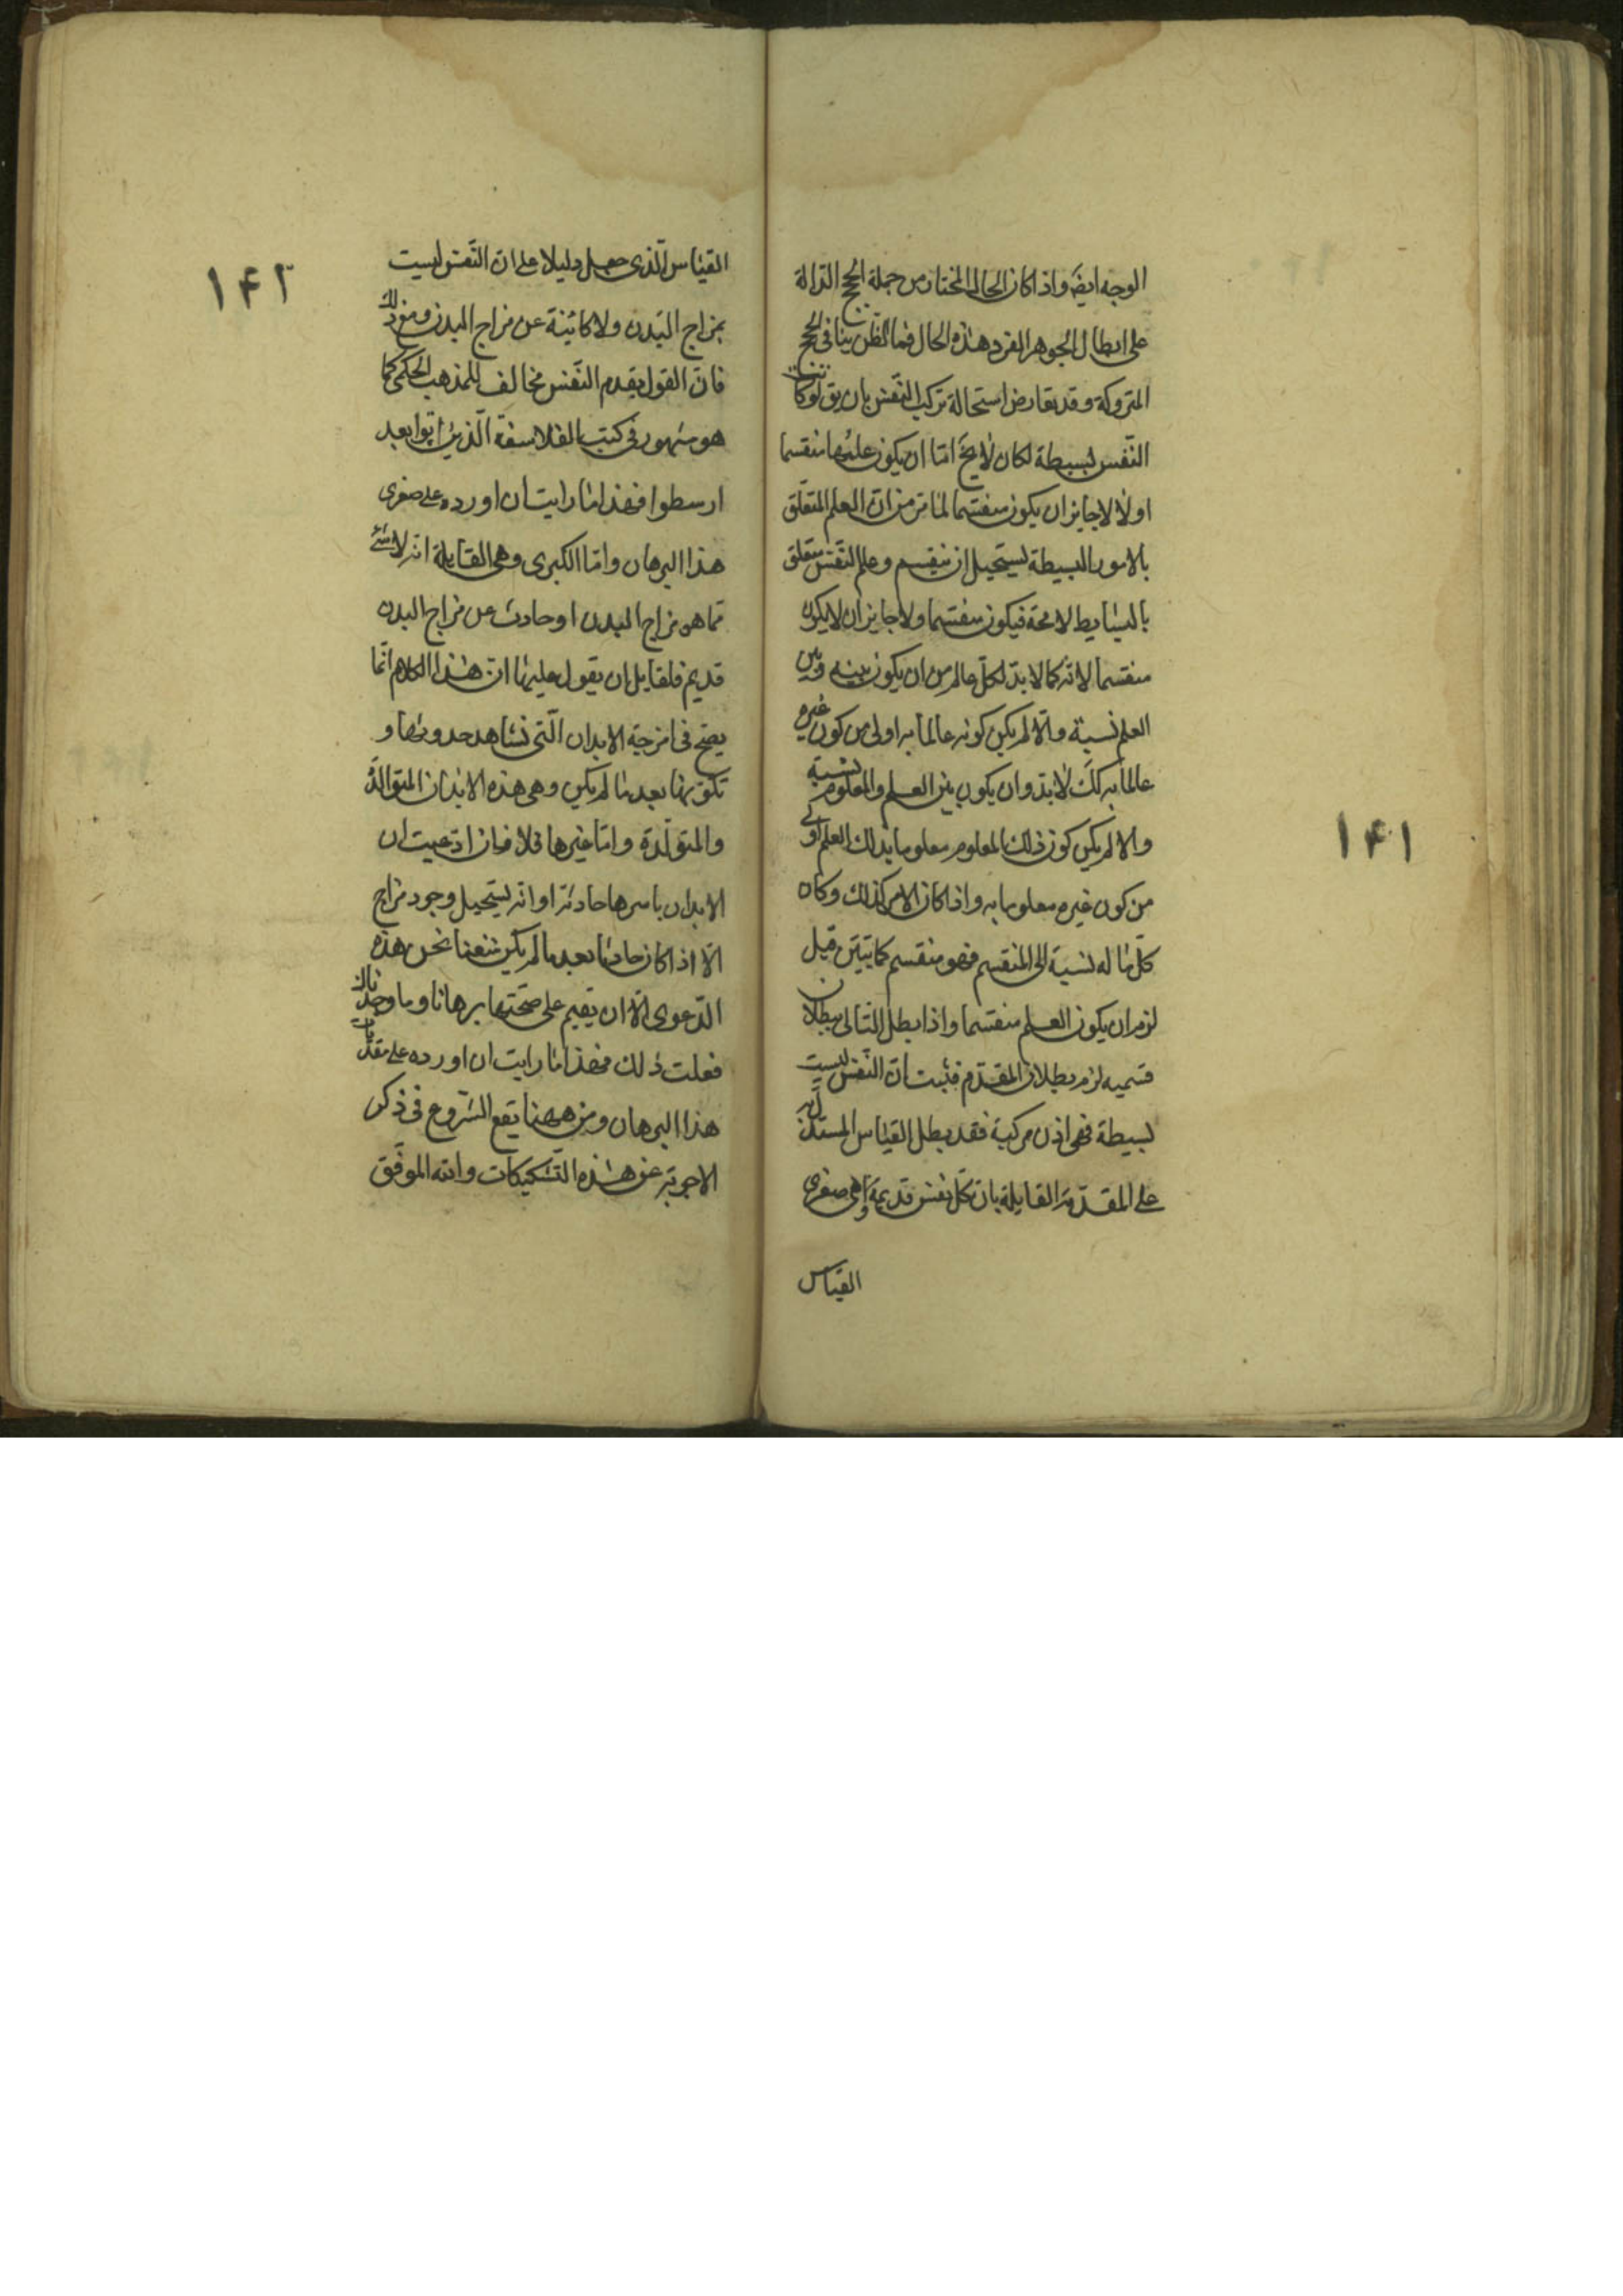 الوجه ايضَ واذا كان الحال المختار من جملة الحجج الدالة
على ابطال الجوهر الفرد هذه الحال فما الظن بباقى الحجج
المتروكة وقد يعارض استحالة تركب النفس بان يق لو كانت
النفس بسيطة لكان لا يخ امّا ان يكون علمها منقسما
او لا لا جايز ان يكون منقسما لما مرّ من ان العلم المتعلّق
بالامور البسيطة يستحيل ان ينقسم وعلم النفس متعلق
بالبسايط لا محة فيكون منقسما ولا جايز ان لا يكون
منقسما لانه كما لا بد لكلّ عالم من ان يكون بينه وبين
العلم نسبة والّا لم يكن كونه عالما به اولى من كون غيره
عالما به كك لا بد وان يكون بين العلم والمعلوم نسبة
والا لم يكن كون ذلك المعلوم معلوما بذلك العلم اولى
من كون غيره معلوما به واذا كان الامر كذلك وكان
كلّ ما له نسبة الى المنقسم فهو منقسم كما تبيّن قبل
لزم ان يكون العلم منقسما واذا بطل التالى ببطلان
قسميه لزم بطلان المقدّم فثبت انّ النّفس ليست
بسيطة فهى اذن مركبة فقد بطل القياس المستدلّ به
على المقدّمة القايلة بان كلّ نفس قديمة وهى صغرى
القياس
١۴١
القياس الّذى جعل دليلا على ان النّفس ليست
بمزاج البدن ولا كائنة عن مزاج البدن ومع ذلك
فانّ القول بقدم النّفس مخالف للمذهب الحكمى كما
هو مشهور فى كتب الفلاسفة الّذين اتوا بعد
ارسطوا فهذا ما رايت ان اورده على صغرى
هذا البرهان وامّا الكبرى وهى القايلة انه لا شئ
مما هو مزاج البدن او حادث عن مزاج البدن
قديم فلقايل ان يقول عليها ان هذا الكلام انّما
يصحّ فى امزجة الابدان الّتى نشاهد حدوثها و
تكوّنها بعد ما لم يكن وهى هذه الابدان المتوالدة
والمتولّدة وامّا غيرها فلا فان ادّعيت ان
الابدان باسرها حادثة او انه يستحيل وجود مزاج
الّا اذا كان حادثا بعد ما لم يكن منعنا نحن هذه
الدّعوى الّا ان يقيم على صحّتها برهانا وما وجدناك
فعلت ذلك فهذا ما رايت ان اورده على مقدّمات
هذا البرهان ومن ههنا يقع الشّروع فى ذكر
الاجوبة عن هذه التّشكيكات والله الموفّق
١۴٢